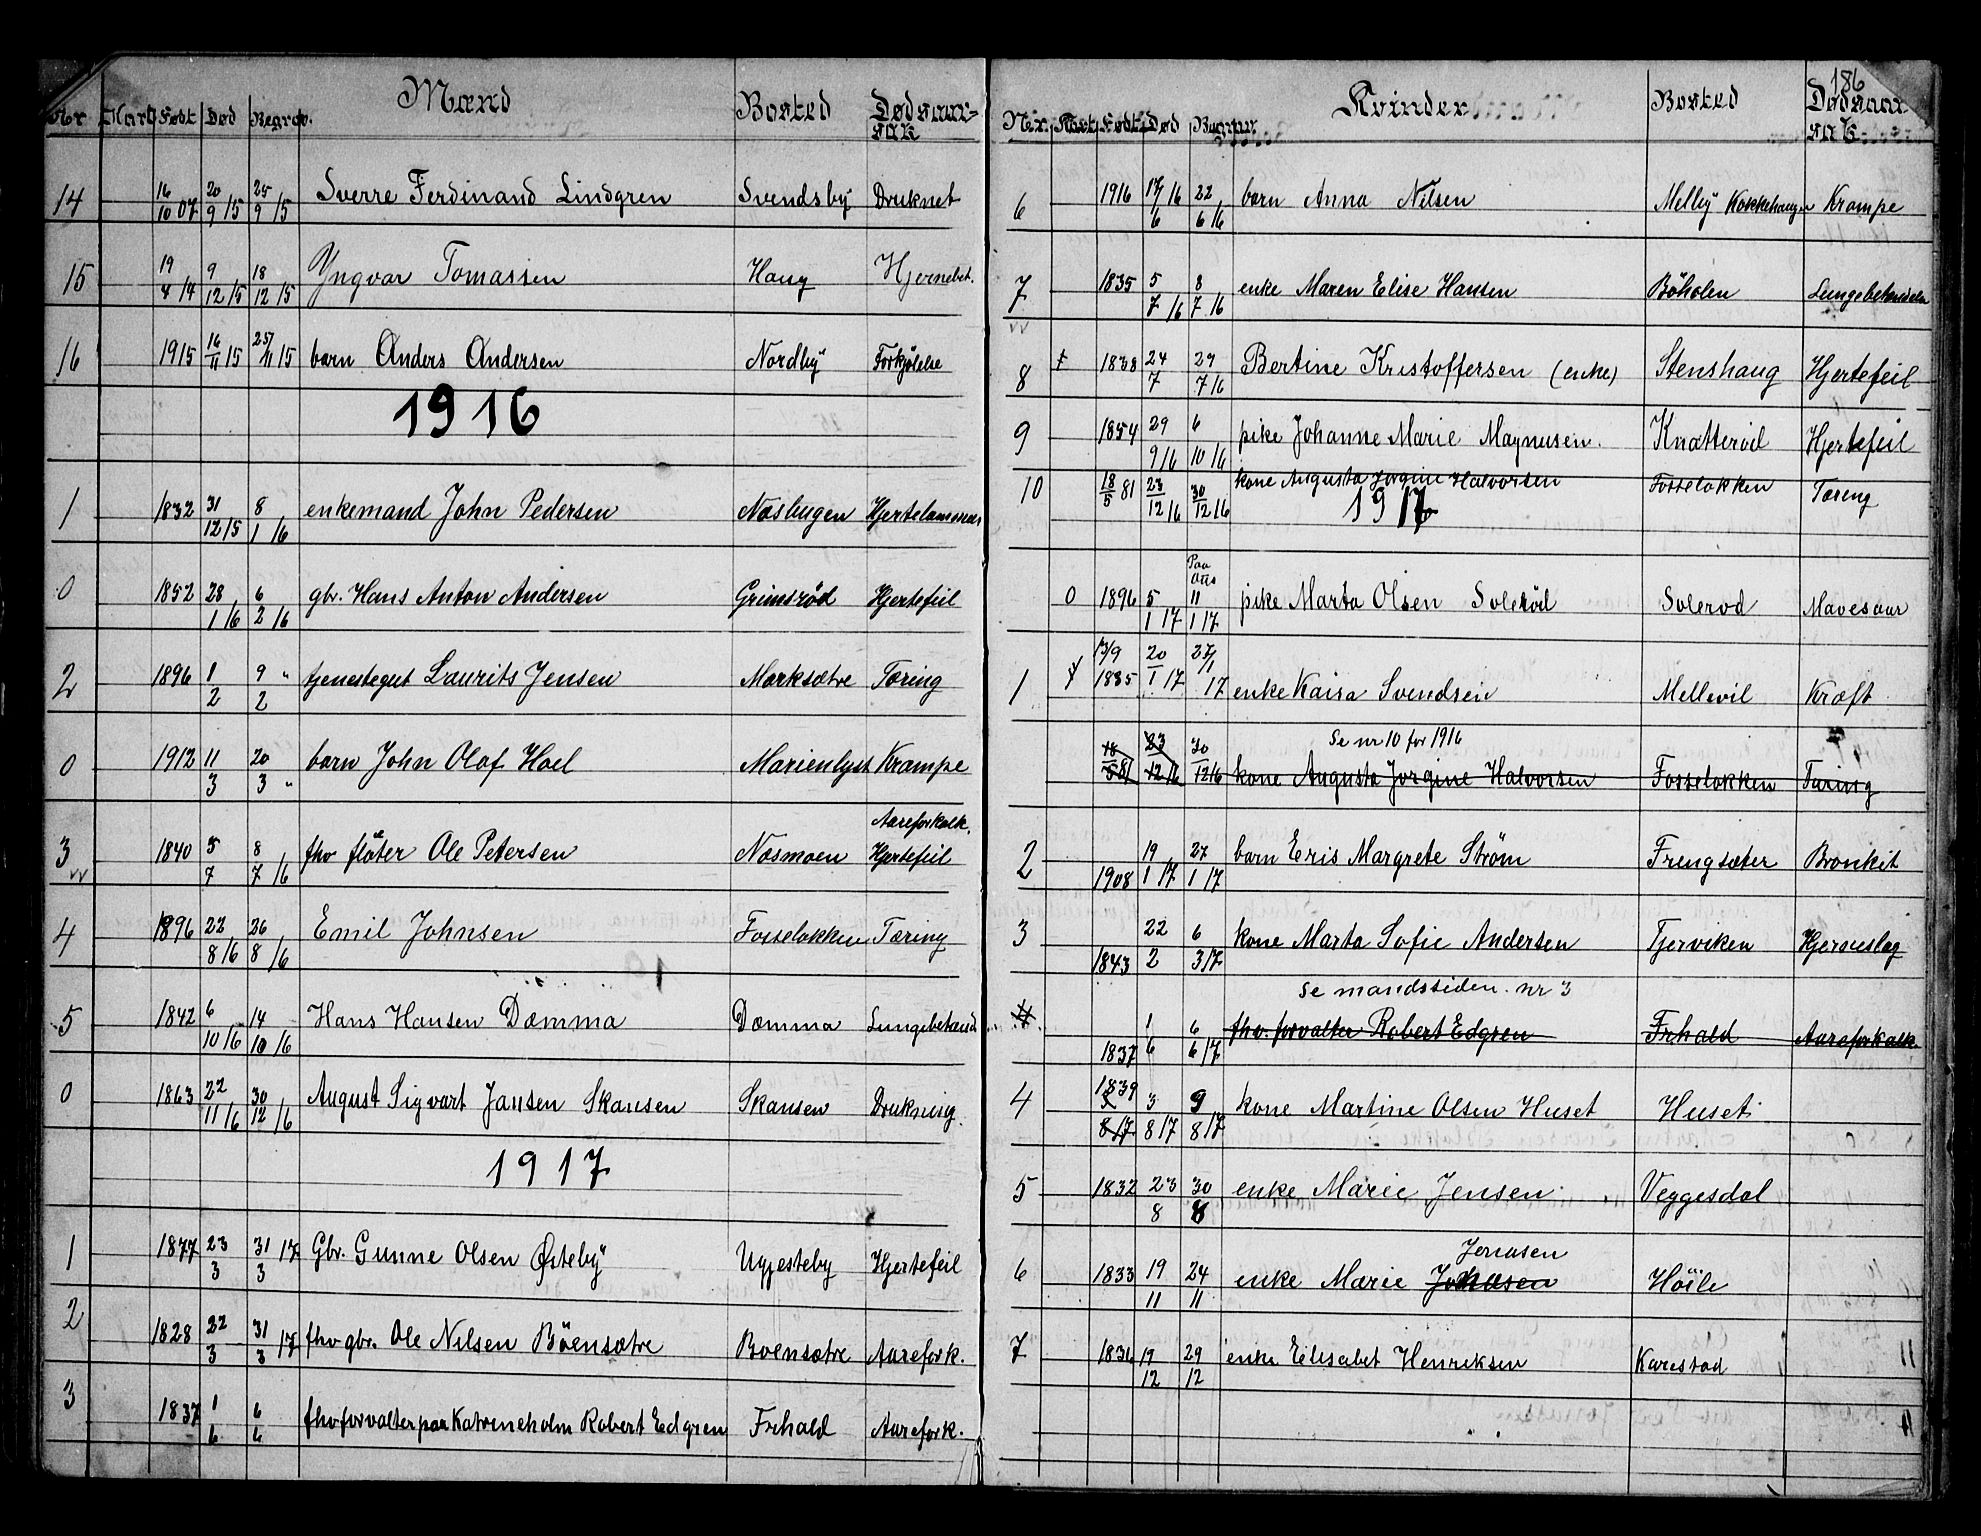 Mænd
Nr Mark Født Død Begrav. Bosted Dødsaar-
sak
14 16/10 07 20/9 15 25/9 15 Sverre Ferdinand Lindgren Svendsby Druknet
15 19/4 14 9/12 15 18/12 15 Yngvar Tomassen Haug Hjernebet.
16 1915 16/11 15 25/11 15 barn Anders Andersen Nordby Forkjølelse
1916
1 1832 31/12 15 8/1 16 enkemand John Pedersen Næsbugen
0 1852 28/1 16 6/2 16 gbr. Hans Anton Andersen Grimsrød Hjertefeil
2 1896 1/2 9/2 " tjenestegut Laurits Jensen Marksætre Tæring
0 1912 11/3 20/3 " barn John Olaf Hoel Marienlyst Krampe
Aareforkalk.
3 1840 5/7 8/7 16 fhv fløter Ole Petersen Næsmoen Hjertefeil
vv
4 1896 22/8 16 26/8 16 Emil Johnsen Fosseløkken Tæring
5 1842 6/10 16 14/10 16 Hans Hansen Dæmma Dæmma Lungebetænd
0 1863 22/11 16 30/12 16 August Sigvart Jansen Skansen Skansen Drukning.
1917
1 1877 23/3 31/3 17 Gbr. Gunne Olsen Østeby Ugjesteby Hjertefeil
2 1828 22/3 31/3 17 fhv gbr. Ole Nilsen Böensætre Boensætre Aarefork.
3 1837 1/6 6/6 fhv forvalter paa Katrineholm Robert Edgren Frhald Aarefork.
186
Kvinder
Nr. Mark Født Død Begrav. Bosted Dødsaar
sak
6 1916 17/6 16 22/6 16 barn Anna Nilsen Melby Kokkehaugen Krampe
7 1835 5/7 16 8/7 16 enke Maren Elise Hansen Böholen
vv
8 1838 24/7 29/7 16 Bertine Kristoffersen (enke) Stenshaug Hjertefeil
9 1854 29/9 16 6/10 16 pike Johanne Marie Magnusen. Knatterød Hjertefeil
10 18/5 81 23/12 16 30/12 16 kone Augusta Jørgine Halvorsen Fosseløkken Tæring
1917
Paa
0 1896 5/1 17 11/1 17 pike Marta Olsen Solerød Solerod Mavesaar
1 13/9 1835 20/1 17 27/1 17 enke Kaisa Svendsen Mellevil Kræft
Se nr 10 for 1916
18/5 81 23/12 16 30/12 16 kone Augusta Jørgine Halvorsen Fosseløkken Tæring
2 1908 19/1 17 27/1 17 barn Eris Margrete Strøm Frengsæter Bronkit
3 1843 22/2 6/3 17 kone Marta Sofie Andersen Tjerviken
Se mandssiden. nr 3
4 1837 1/6 6/6 17 fhv. forvalter Robert Edgren Frhald Aareforkalk.
4 1839 3/8 17 9/8 17 kone Martine Olsen Huset Huset
5 1832 23/8 30/8 enke Marie Jensen Veggesdal
Jensen
6 1833 19/11 24/11 enke Marie Johnsen Höile
7 1836 19/12 29/12 enke Elisabet Henriksen Karestad